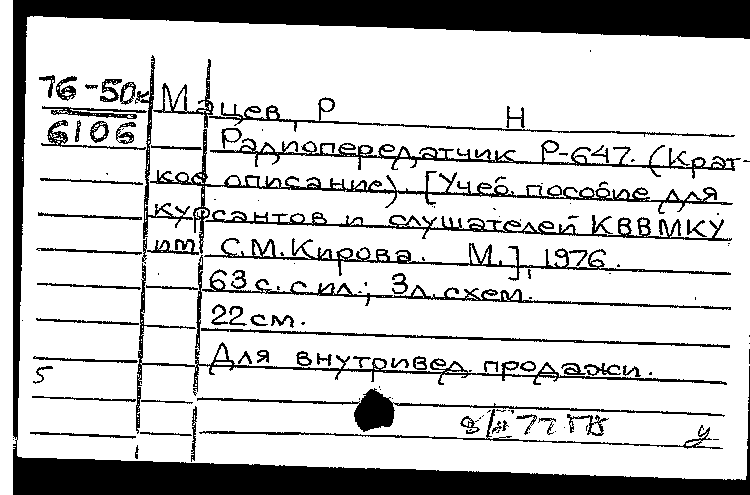 76-50к Мацев, Р Н
6106 Радиопередатчик Р-647. (Крат-
кое описание). [Учеб. пособие для
курсантов и слушателей КВВМКУ
им С.М.Кирова. М.], 1976.
63 с. с ил.; 3л.схем.
22см.
Для внутривед. продажи.
5
у